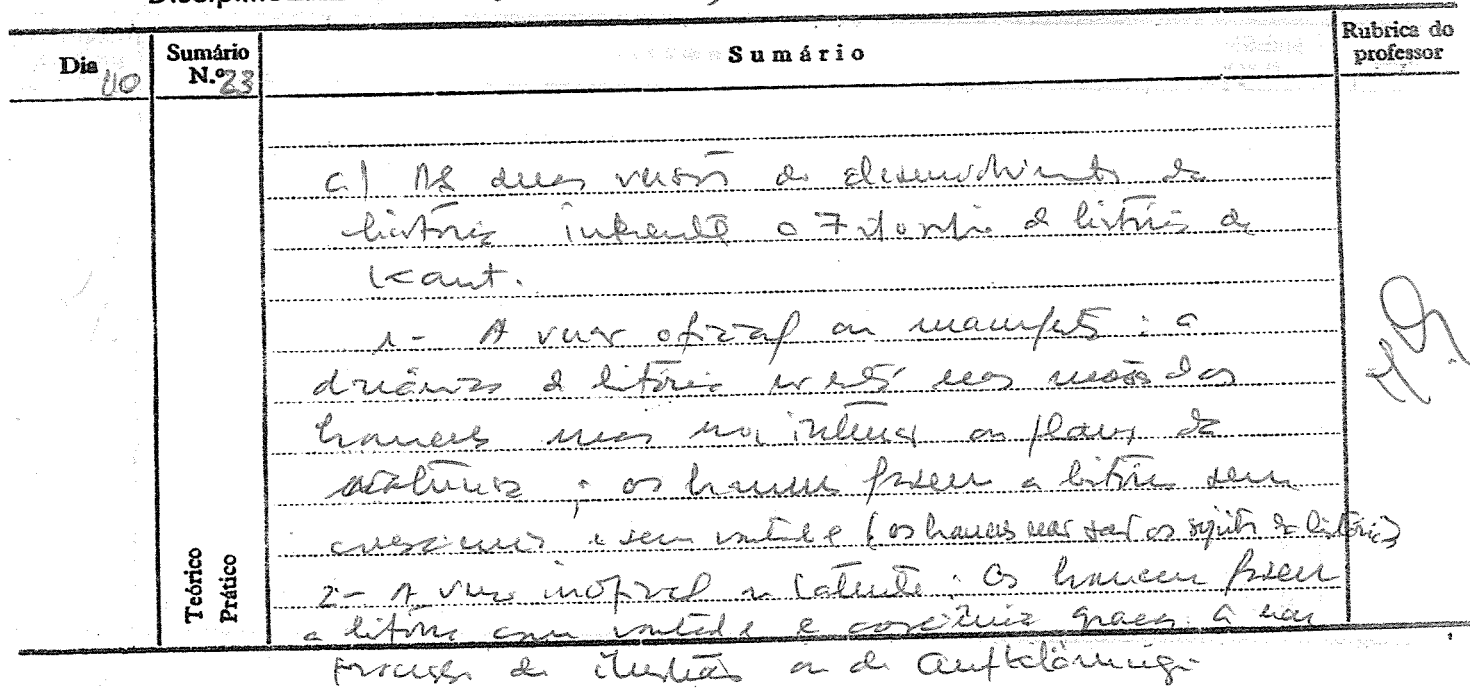 Dia 10
Sumário N.º 23
Sumário
Rubrica do professor
c) As duas versões do desenvolvimento da
história inerente à Filosofia da história de
Kant.
1- A versão oficial ou manifesta: a
dinâmica da história não está nas mãos dos
homens mas nos intenções ou planos da
natureza; os homens fazem a história sem
consciência e sem vontade (os homens não são os sujeitos da história)
2- A versão inoficial ou latente: Os homens fazem
a história com vontade e consciência graças a um
processo de ilustração ou de Aufklärung.
Teórico
Prático